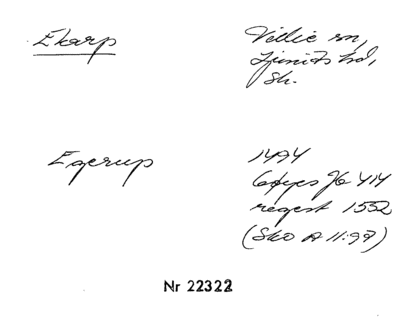 Ekarp
Villie sn,
Ljunits hd,
Sk.
Egerup
1494
Jb 414
regest 1552
(Sko A 11:97)
Nr 22322